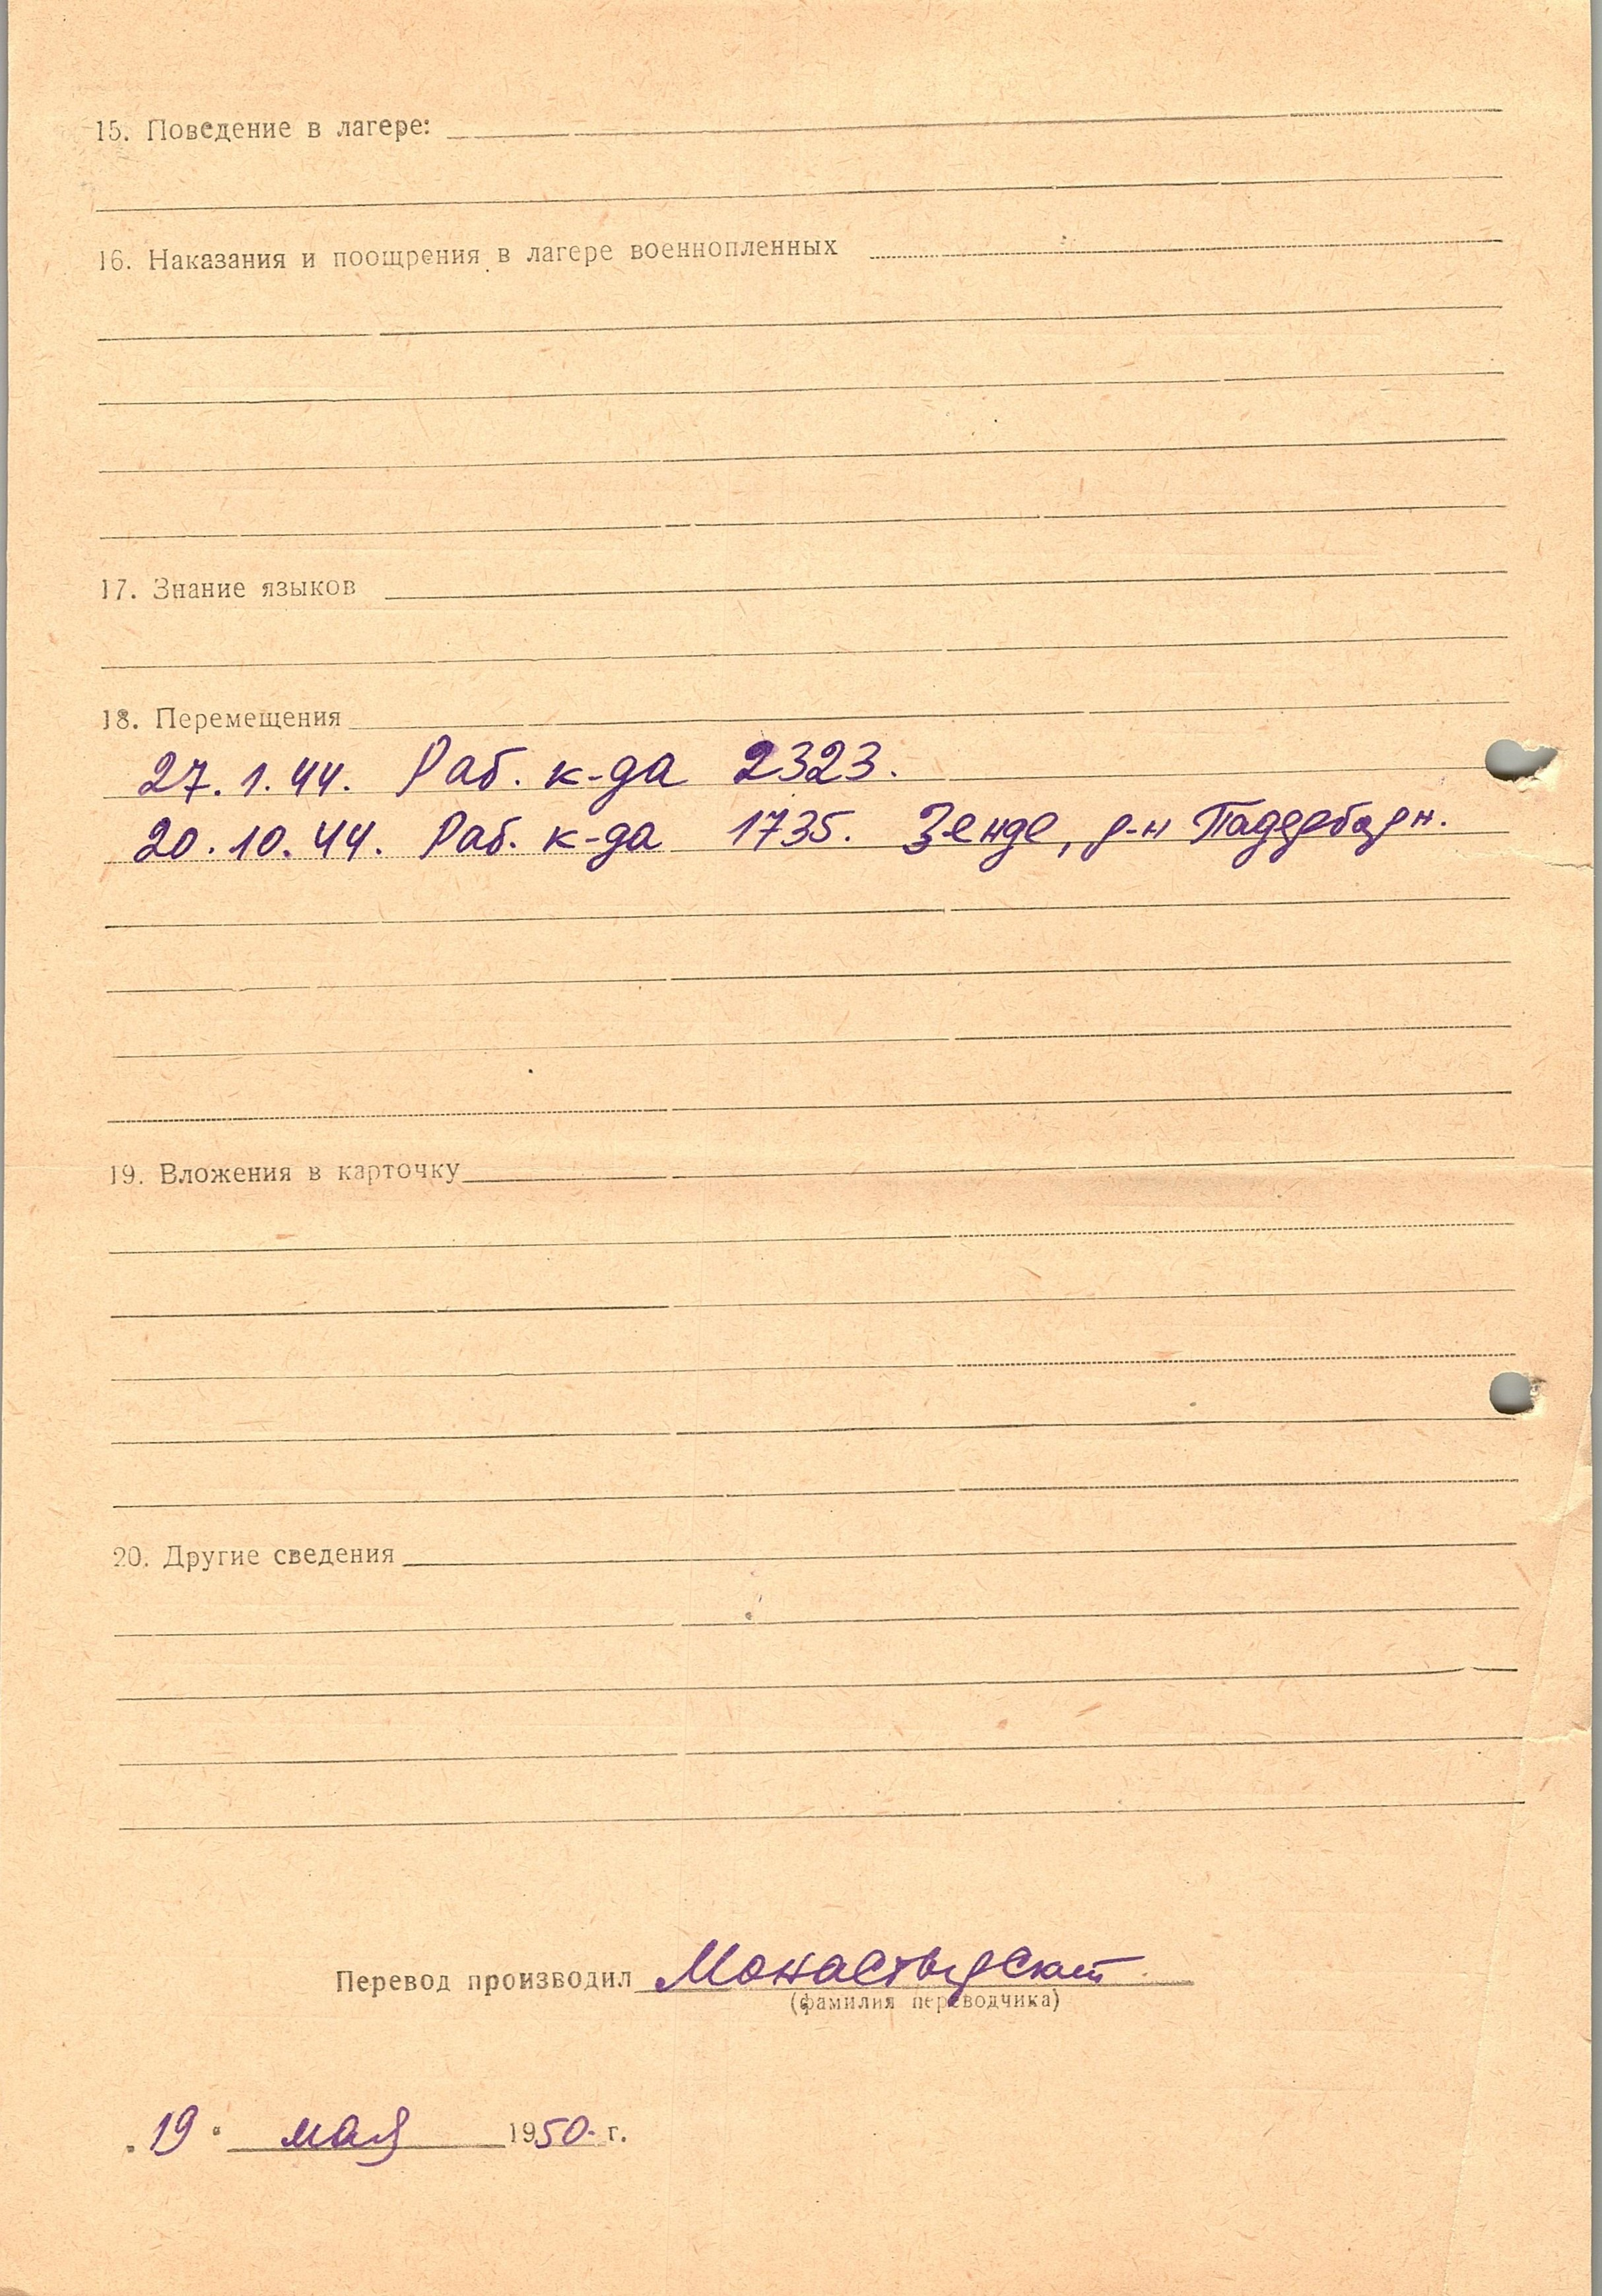 15. Поведение в лагере:
16. Наказания и поощрения в лагере военнопленных
17. Знание языков
18. Перемещения
27.1.44. Раб. к-да 2323.
20.10.44. Раб. к-да 1735. Зенде, р-н Падерборн.
19. Вложения в карточку
20. Другие сведения
Перевод производил Монастырская
(фамилия переводчика)
„19“ мая 1950 г.